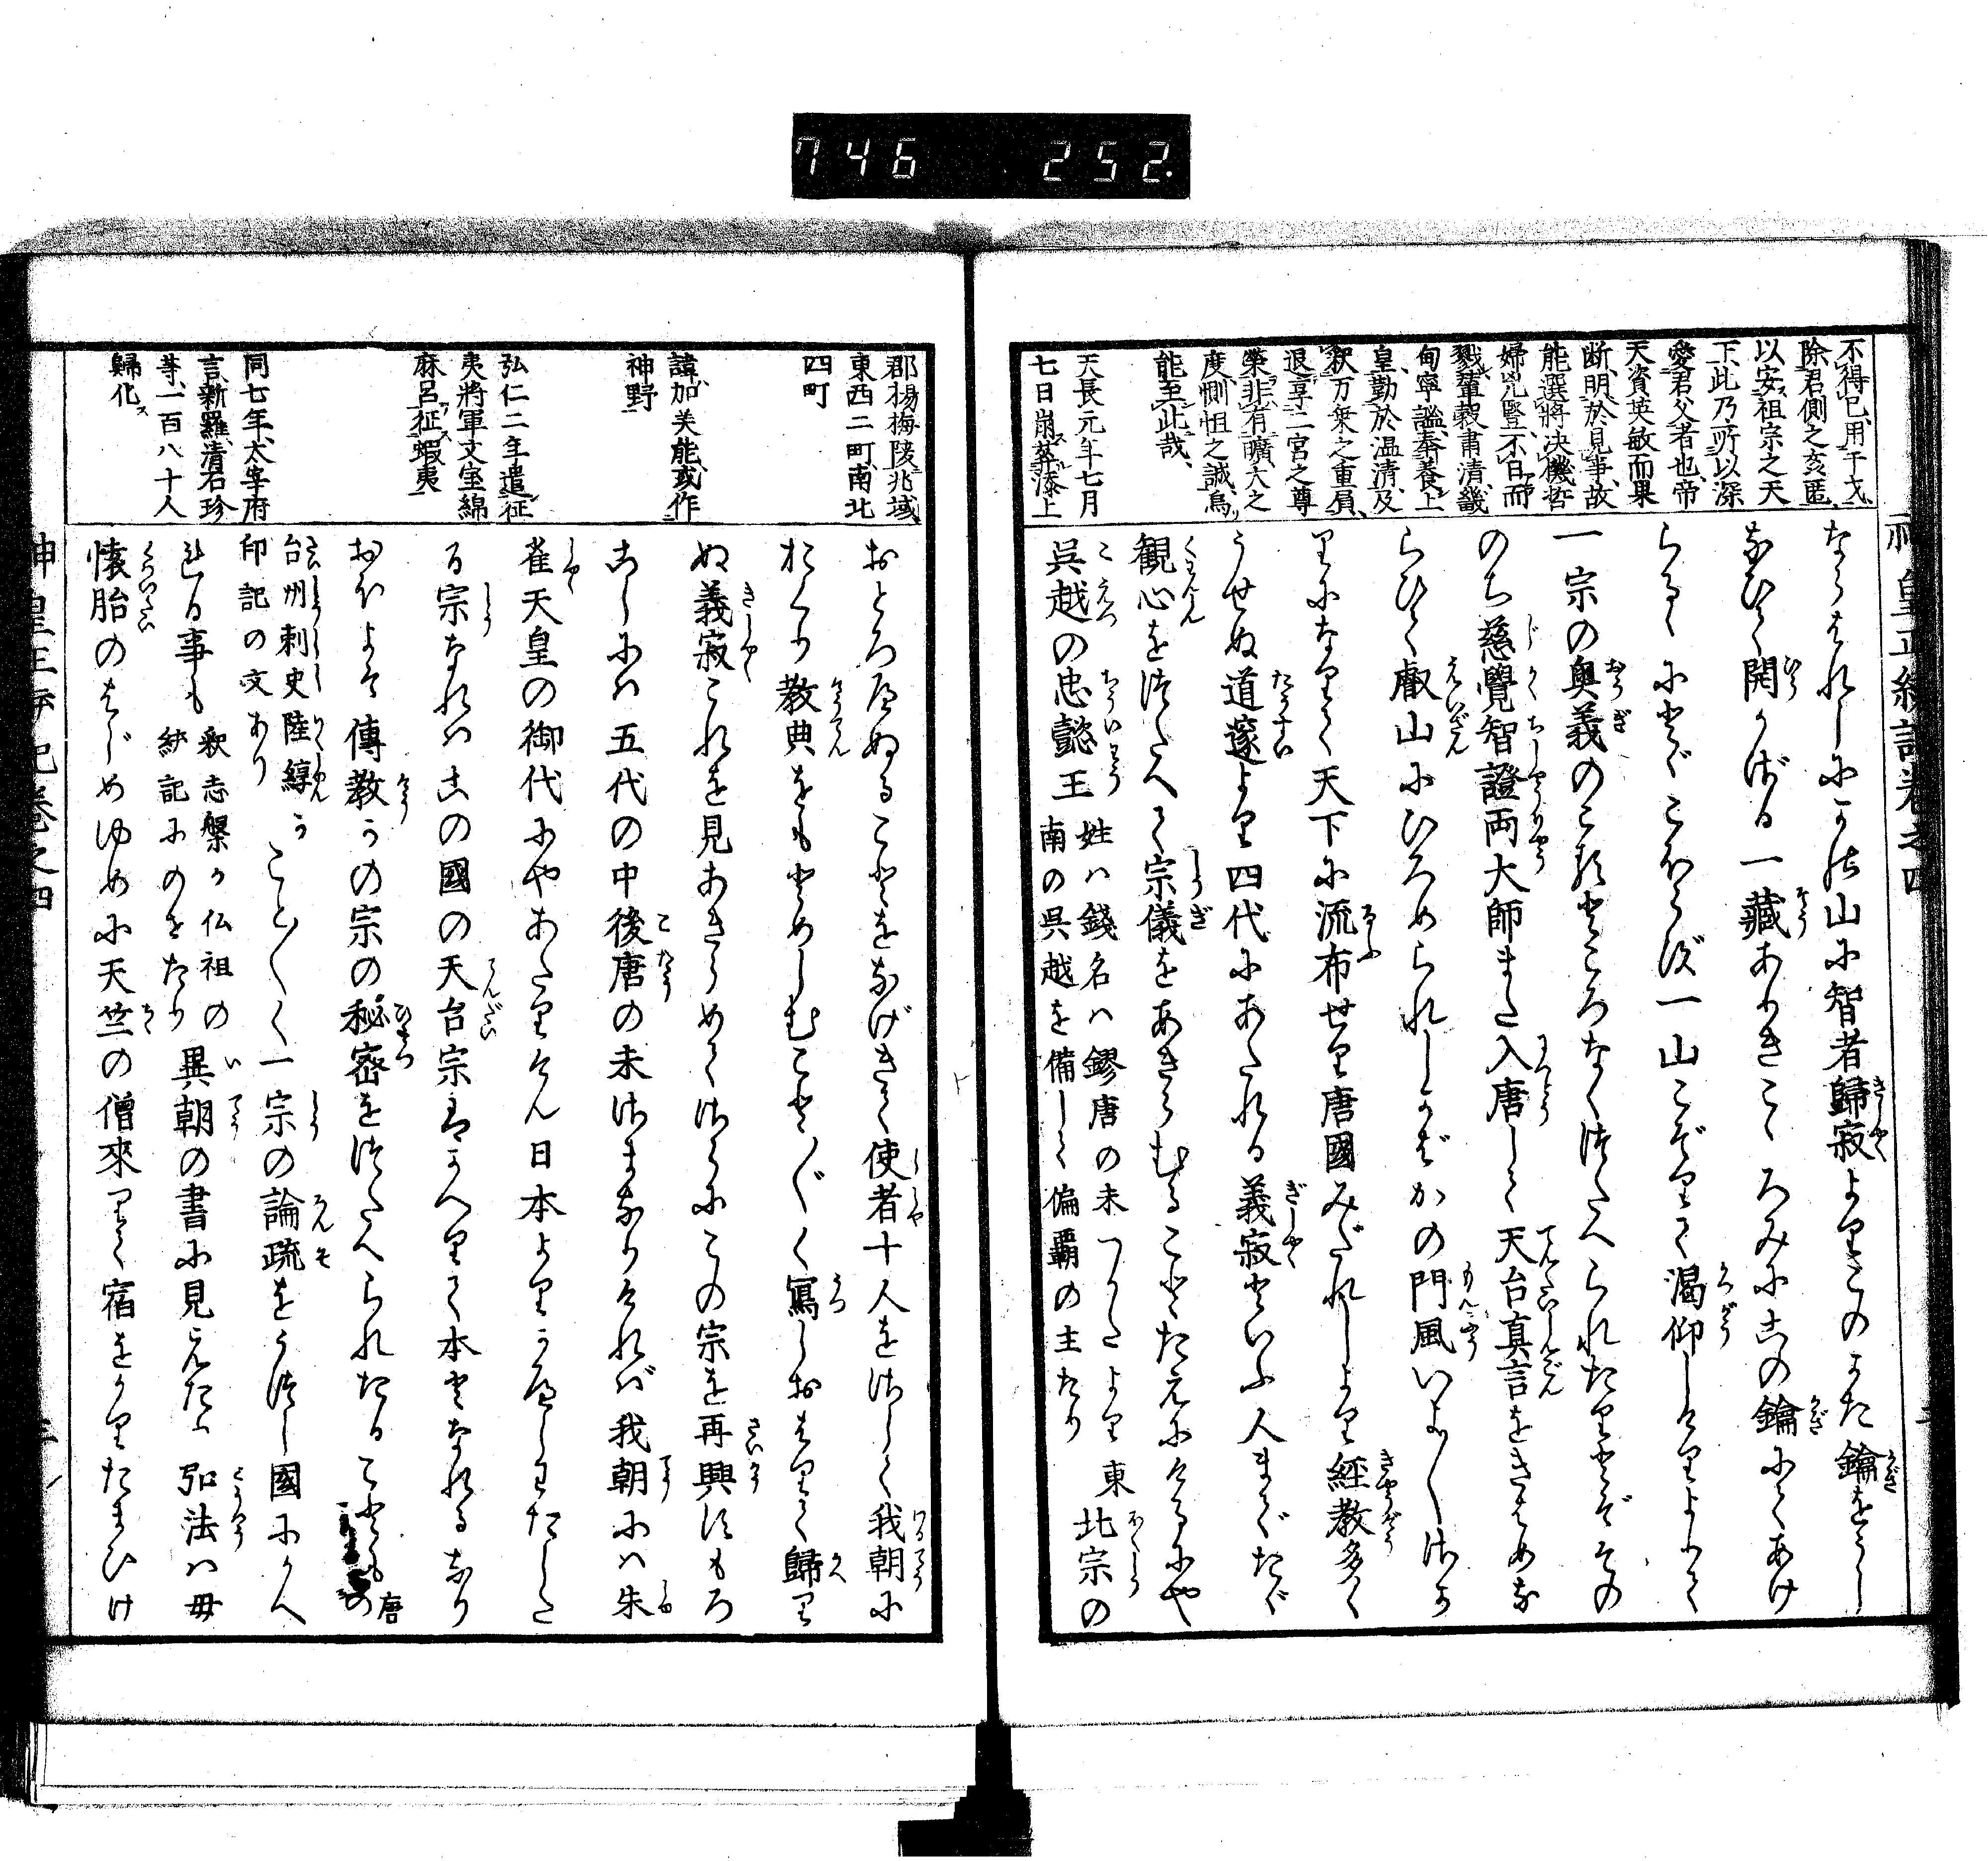 746 252.
神皇正統記巻之四
不得已用干戈
除君側之姦匿
以安祖宗之天
下此乃所以深
愛君父者也帝
天資英敏而果
断明於見事故
能選將決機哲
婦兇豎不日而
戮輦轂粛清畿
甸寧謐奉養上
皇勤於温清及
釈万乗之重屓
退享二宮之尊
榮非有曠大之
度惻怛之誠烏
能至此哉
天長元年七月
七日崩葬添上
なられしにかの山に智者歸寂よりこのかた鑰をうし
なひて開かざる一藏ありきこゝろみにこの鑰にてあけ
らるゝにとゞこほらず一山こぞりて渇仰しけりよりて
一宗の奥義のこるところなくつたへられたりとぞその
のち慈覺智證両大師また入唐して天台真言をきはめな
らひて叡山にひろめられしかばかの門風いよ〳〵さか
りになりて天下に流布せり唐國みだれしより經教多く
うせぬ道邃より四代にあたれる義寂といふ人までたゞ
観心をつたへて宗儀をあきらむることたえにけるにや
呉越の忠懿王
姓ハ錢名ハ鏐唐の末つかたより東
南の呉越を備して偏覇の主たり
北宗の
郡楊梅陵兆域
東西二町南北
四町
諱加美能或作
神野
弘仁二年遣征
夷將軍文室綿
麻呂征蝦夷
同七年太宰府
言新羅清石珍
等一百八十人
歸化
おとろへぬることをなげきて使者十人をさして我朝に
おくり教典をもとめしむこと〴〵く寫しおはりて歸り
ぬ義寂これを見あきらめてさらにこの宗を再興すもろ
こしにハ五代の中後唐の末さまなりければ我朝にハ朱
雀天皇の御代にやあたりけん日本よりかへしわたした
る宗なれハこの國の天台宗はかへりて本となれるなり
おほよそ傳教かの宗の秘密をつたへられたることも
唐の
台州刺史陸綽が
印記の文あり
こと〴〵く一宗の論疏をうつし國にかへ
れる事も
釈志槃が仏祖の
統記にのせたり
異朝の書に見えたり弘法ハ母
懐胎のはじめゆめに天竺の僧來りて宿をかりたまひけ
神皇正統記巻之四